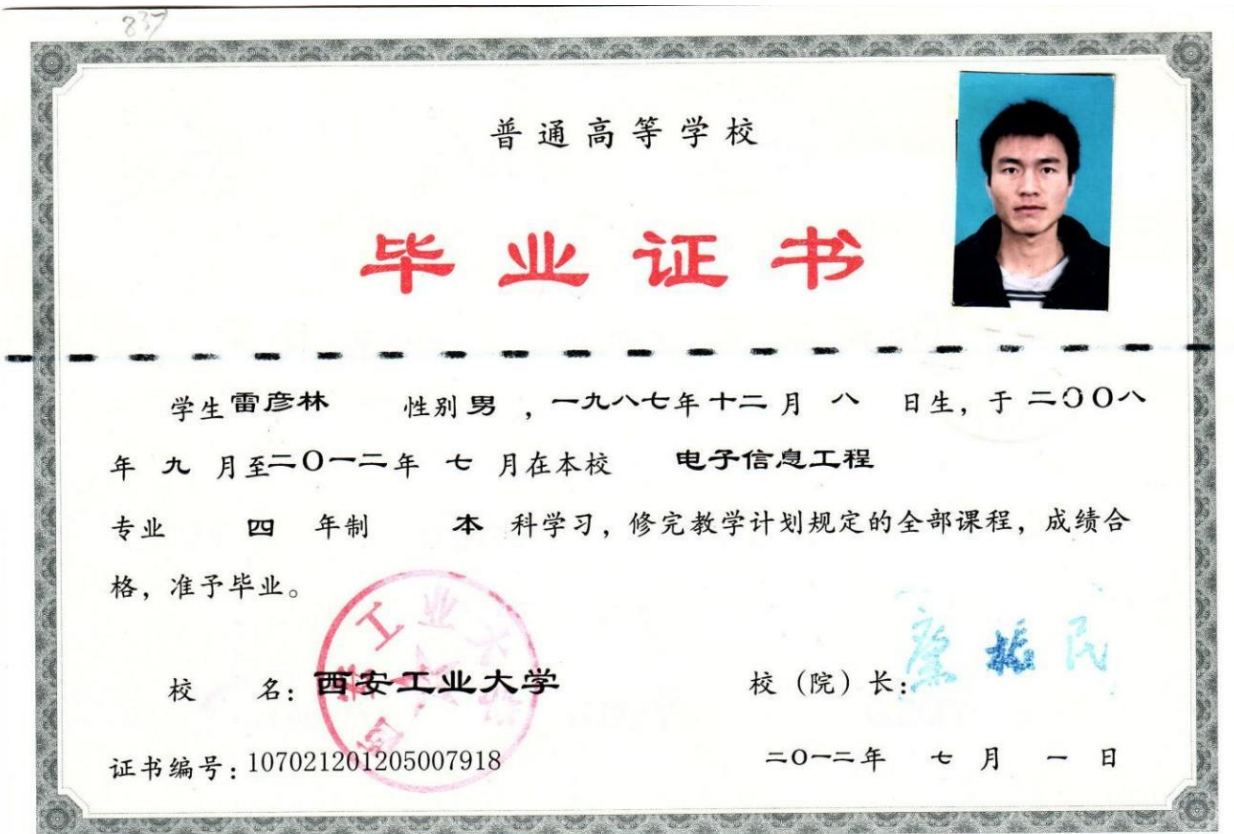 837
普通高等学校
毕业证书
学生雷彦林 性别男，一九八七年十二月 八 日生，于二〇〇八
年 九 月至二〇一二年 七 月在本校 电子信息工程
专业 四 年制 本 科学习，修完教学计划规定的全部课程，成绩合
格，准予毕业。
西安工业大学
校 名：西安工业大学 校（院）长：
证书编号：107021201205007918 二〇一二年 七 月 一 日